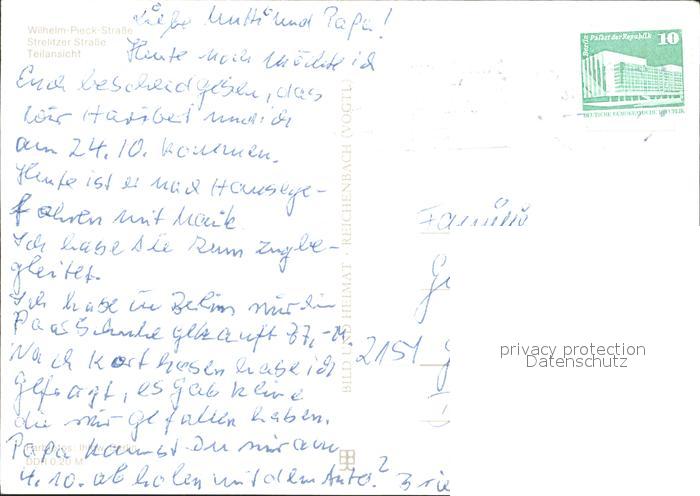 Wilhelm-Pieck-Straße
Strelitzer Straße
Teilansicht
Liebe Mutti und Papa!
Heute noch möchte ich
Euch bescheid geben, das
wir Haribet und ich
am 24.10. kommen.
Heute ist er nach Hause ge-
fahren mit Maik.
Ich habe sie zum Zug be-
gleitet.
Ich habe in Berlin mir ein
Paar Schuhe gekauft 37,- M.
Nach Korthosen habe ich
gefragt, es gab keine
die mir gefallen haben.
Papa kannst Du mir am
4.10. abholen mit dem Auto?
DDR 0,20 M
BILD UND HEIMAT · REICHENBACH (VOGTL)
Berlin Palast der Republik 10
DEUTSCHE DEMOKRATISCHE REPUBLIK
Familie
2151
privacy protection
Datenschutz